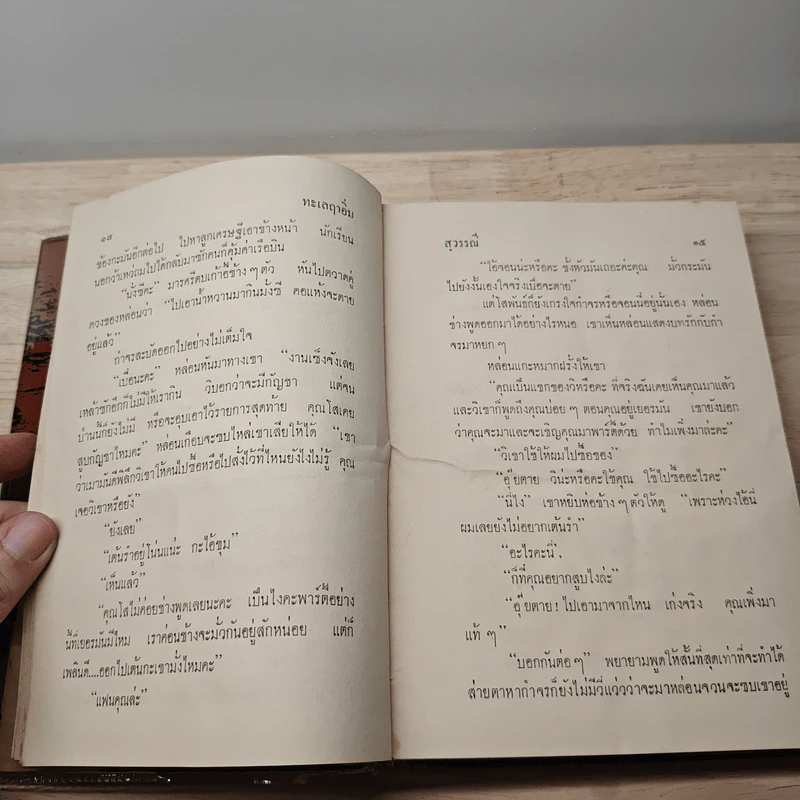 ๑๔
ทะเลฤาอิ่ม
ข้องกะมันอีกต่อไป ไปหาลูกเศรษฐีเอาข้างหน้า นักเรียน
นอกว้าเหว่ถมไปได้กลับมาซักคนก็คุ้มค่าเรือบิน
"นั่งซีคะ" มารศรีตบเก้าอี้ข้าง ๆ ตัว หันไปตวาดคู่
ควงของหล่อนว่า "ไปเอาน้ำหวานมากินมั่งซี คอแห้งจะตาย
อยู่แล้ว"
กำจรสะบัดออกไปอย่างไม่เต็มใจ
"เบื่อนะคะ" หล่อนหันมาทางเขา "งานเซ็งจังเลย
เหล้าซักอึกก็ไม่มีให้เรากิน วิบอกว่าจะมีกัญชา แต่จน
ป่านนี้ก็ยังไม่มี หรือจะอุบเอาไว้รายการสุดท้าย คุณโสเคย
สูบกัญชาไหมคะ" หล่อนเกือบจะซบไหล่เขาเสียให้ได้ "เขา
ว่าเมามันดีพิลึกวิเขาให้คนไปซื้อหรือไปสั่งไว้ที่ไหนยังไงไม่รู้ คุณ
เจอวิเขาหรือยัง"
"ยังเลย"
"เต้นรำอยู่โน่นแน่ะ กะไอ้ชุม"
"เห็นแล้ว"
"คุณโสไม่ค่อยช่างพูดเลยนะคะ เป็นไงคะพาร์ตี้อย่าง
นี้ที่เยอรมันมีไหม เราค่อนข้างจะมั่วกันอยู่สักหน่อย แต่ก็
เพลินดี....ออกไปเต้นกะเขามั่งไหมคะ"
"แฟนคุณล่ะ"
สุวรรณี
๑๕
"ไอ้จอนน่ะหรือคะ ชั่งหัวมันเถอะค่ะคุณ มั่วกระมัน
ไปยังงั้นเองใจจริงเบื่อจะตาย"
แต่โสพันธ์ก็ยังเกรงใจกำจรหรือจอนนี่อยู่นั้นเอง หล่อน
ช่างพูดออกมาได้อย่างไรหนอ เขาเห็นหล่อนแสดงบทรักกับกำ
จรมาหยก ๆ
หล่อนแกะหมากฝรั่งให้เขา
"คุณเป็นแขกของวิหรือคะ ที่จริงฉันเคยเห็นคุณมาแล้ว
และวิเขาก็พูดถึงคุณบ่อย ๆ ตอนคุณอยู่เยอรมัน เขายังบอก
ว่าคุณจะมาและจะเชิญคุณมาพาร์ตี้ด้วย ทำไมเพิ่งมาล่ะคะ"
"วิเขาใช้ให้ผมไปซื้อของ"
"อุ๊ยตาย วิน่ะหรือคะใช้คุณ ใช้ไปซื้ออะไรคะ"
"นี่ไง" เขาหยิบห่อข้าง ๆ ตัวให้ดู "เพราะห่วงไอ้นี่
ผมเลยยังไม่อยากเต้นรำ"
"อะไรคะนี่"
"ก็ที่คุณอยากสูบไงล่ะ"
"อุ๊ยตาย! ไปเอามาจากไหน เก่งจริง คุณเพิ่งมา
แท้ ๆ"
"บอกกันต่อ ๆ" พยายามพูดให้สั้นที่สุดเท่าที่จะทำได้
ส่ายตาหากำจรก็ยังไม่มีวี่แววว่าจะมาหล่อนจวนจะซบเขาอยู่